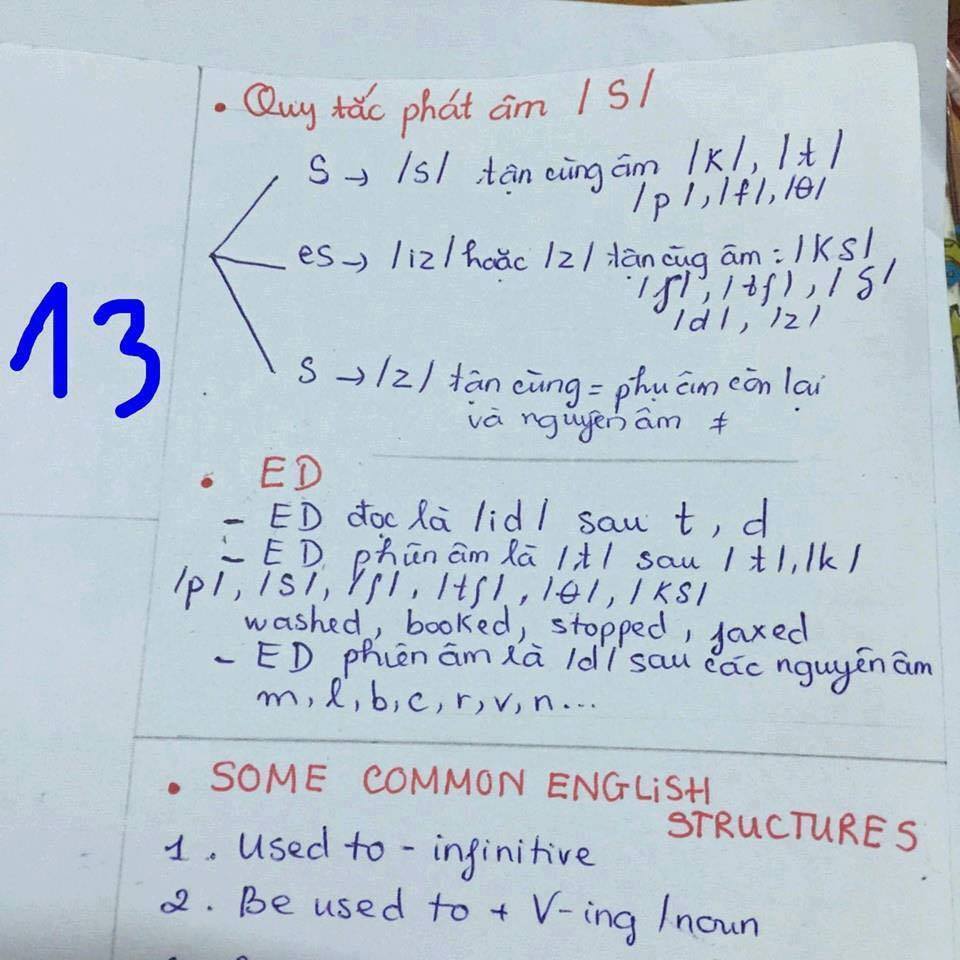 • Quy tắc phát âm /S/
S → /s/ tận cùng âm /k/, /t/
/p/, /f/, /θ/
es → /iz/ hoặc /z/ tận cùg âm : /KS/
/ʃ/, /tʃ/, /S/
/d/, /z/
S → /z/ tận cùng = phụ âm còn lại
và nguyên âm ≠
• ED
- ED đọc là /id/ sau t, d
- ED phiên âm là /t/ sau /t/, /k/
/p/, /S/, /ʃ/, /tʃ/, /θ/, /KS/
washed, booked, stopped, faxed
- ED phiên âm là /d/ sau các nguyên âm
m, l, b, c, r, v, n...
13
• SOME COMMON ENGLiSH
STRUCTURES
1. Used to - infinitive
2. Be used to + V-ing /noun